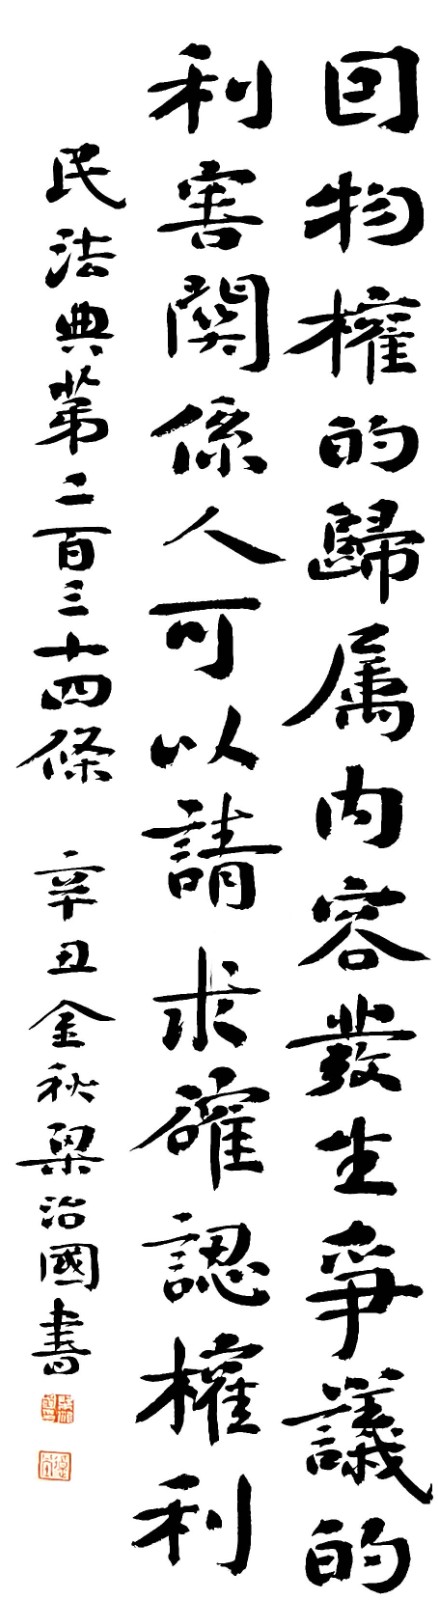 因物權的歸属内容發生爭議的
利害関係人可以請求確認權利
民法典第二百三十四條 辛丑金秋梁治國書